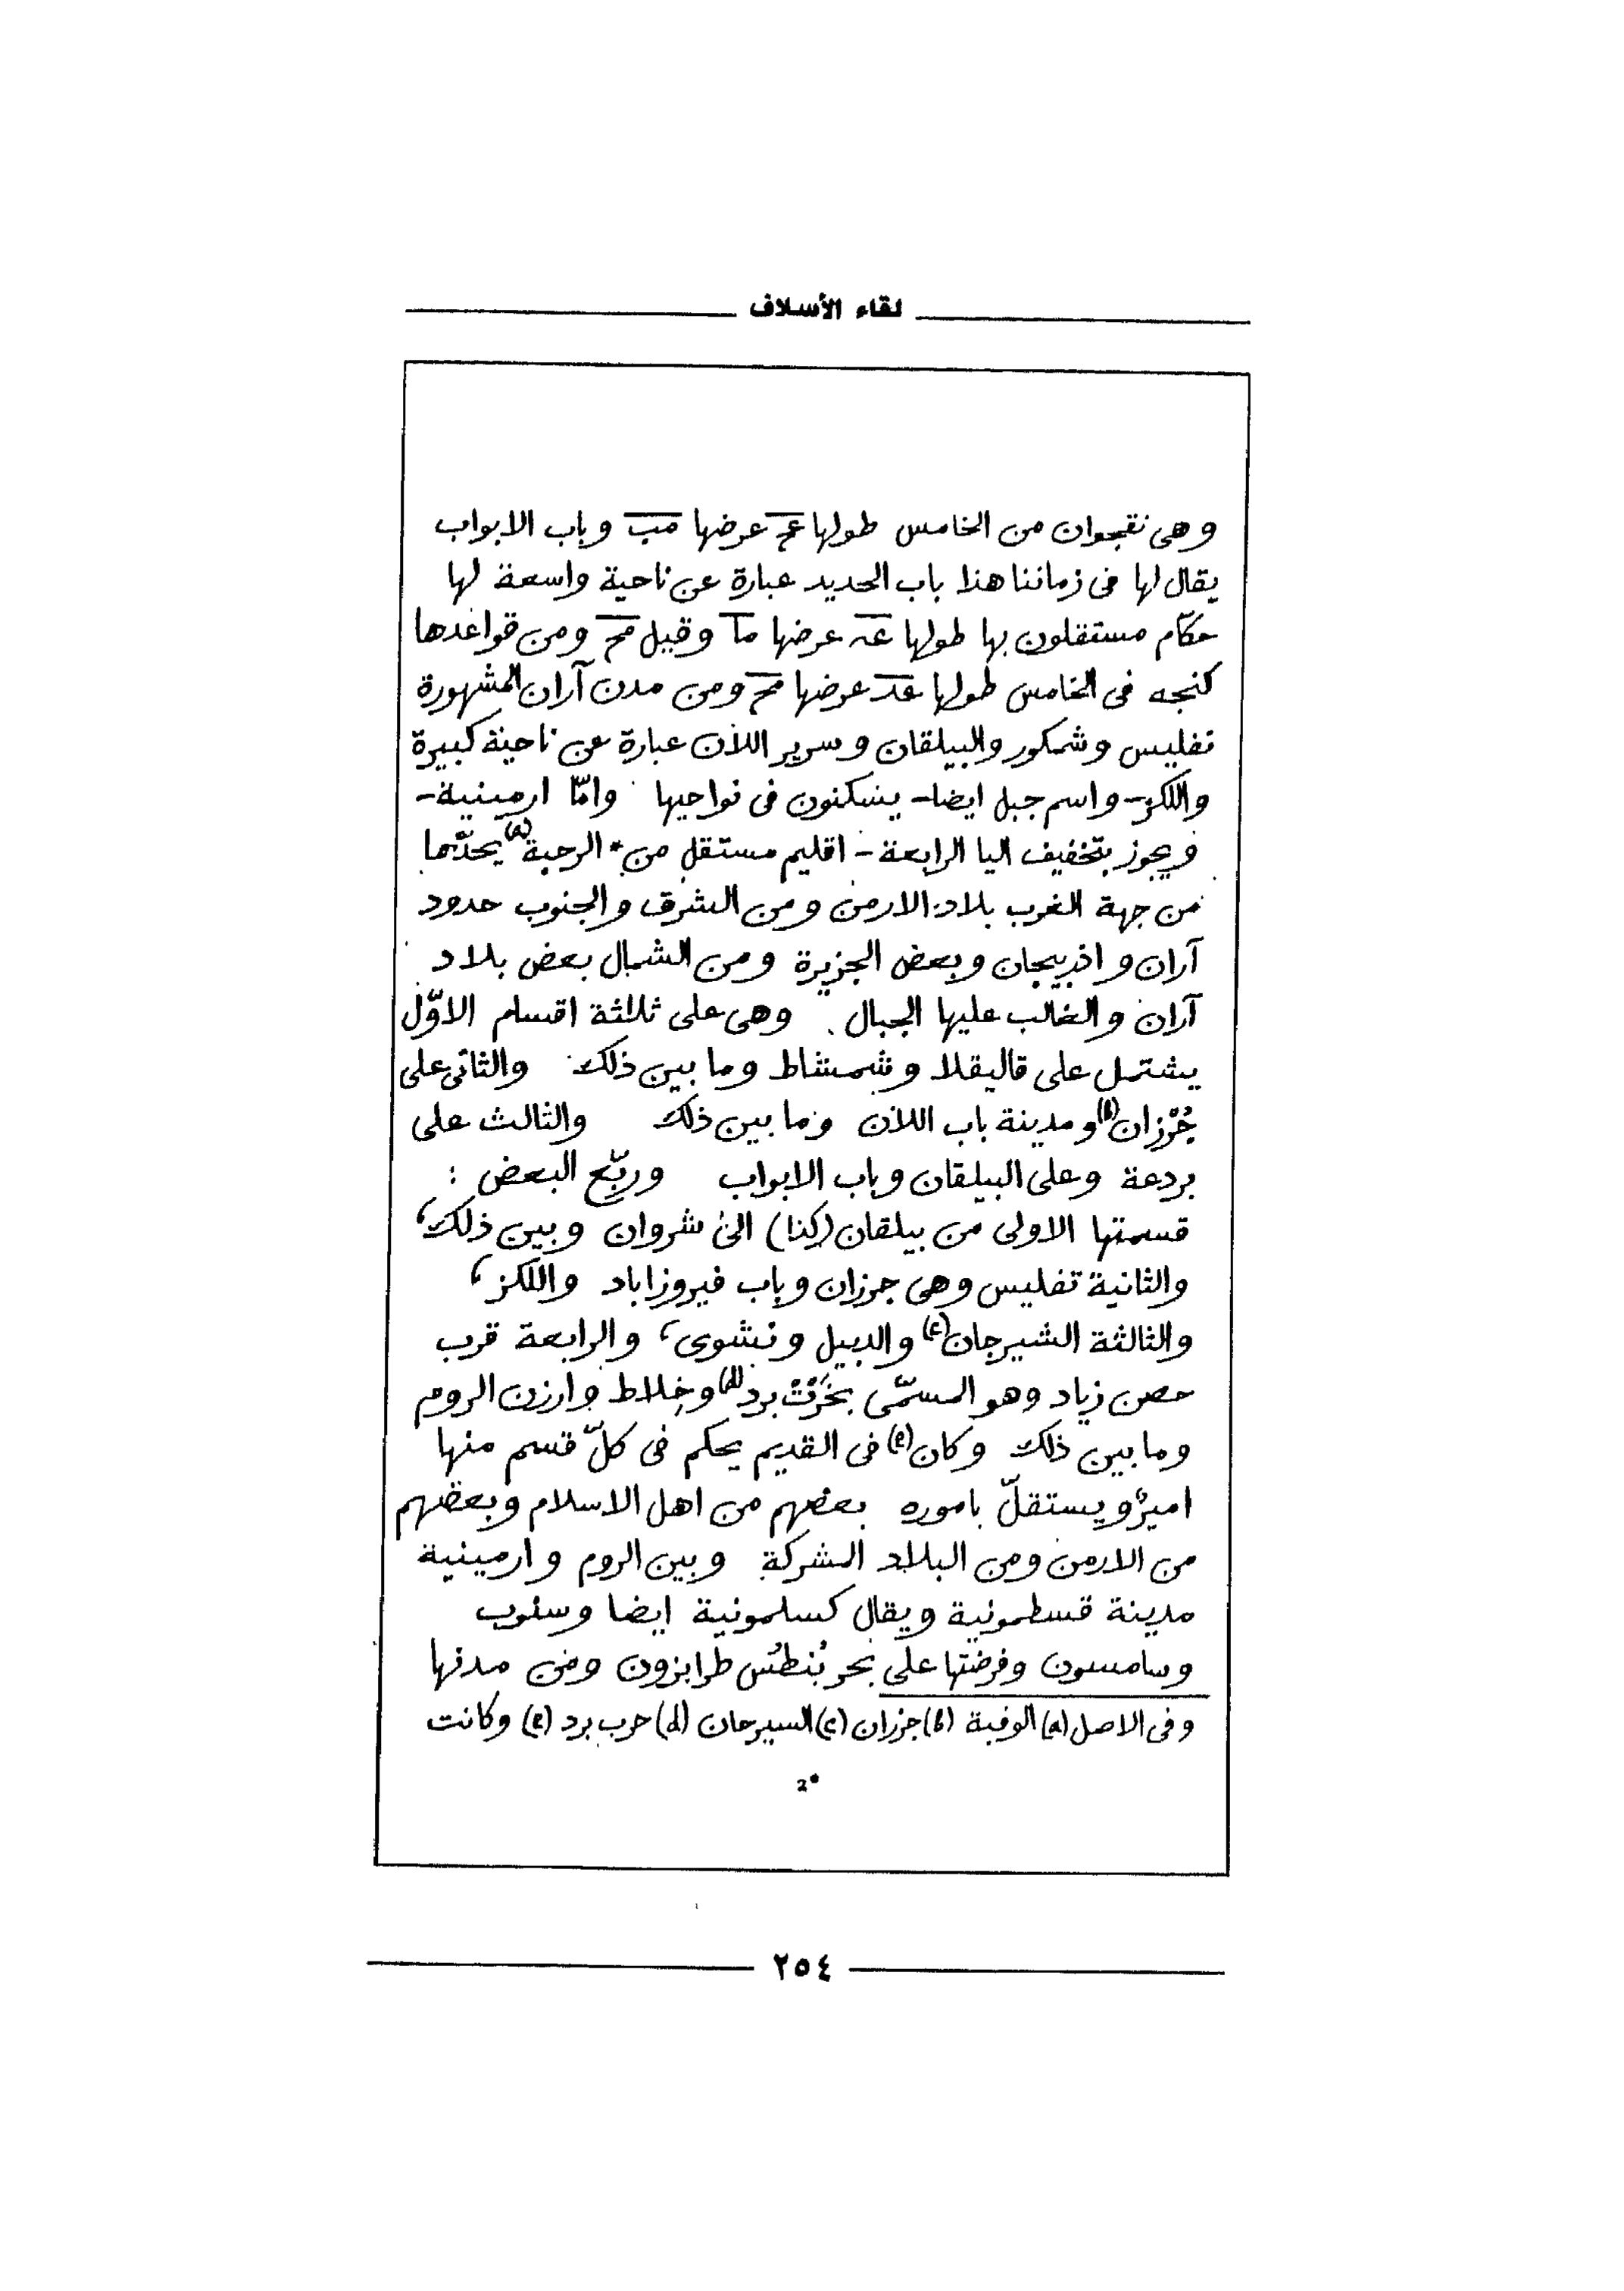 لقاء الأسلاف
وهى نقجوان من الخامس طولها عج عرضها مب وباب الابواب
يقال لها فى زماننا هذا باب الحديد عبارة عن ناحية واسعة لها
حكّام مستقلون بها طولها عه عرضها ما وقيل مج ومن قواعدها
كنجه فى الخامس طولها عد عرضها مج ومن مدن آران المشهورة
تفليس وشمكور والبيلقان وسرير اللان عبارة عن ناحية كبيرة
واللكز - واسم جبل ايضا - يسكنون فى نواحيها وامّا ارمينية -
ويجوز بتخفيف اليا الرابعة - اقليم مستقل من * الرحبة (a) يحدّها
من جهة الغرب بلاد الارمن ومن الشرق والجنوب حدود
آران واذربيجان وبعض الجزيرة ومن الشمال بعض بلاد
آران والغالب عليها الجبال . وهى على ثلاثة اقسام الاوّل
يشتمل على قاليقلا وشمشاط وما بين ذلك والثانى على
جُرْزان (b) ومدينة باب اللان وما بين ذلك والثالث على
بردعة وعلى البيلقان وباب الابواب وربّع البعض :
قسمتها الاولى من بيلقان (كذا) الى شروان وبين ذلك،
والثانية تفليس وهى جرزان وباب فيروزاباد واللكز،
والثالثة الشيرجان (c) والدبيل ونشوى، والرابعة قرب
حصن زياد وهو المسمّى بخَرْتْ برد (d) وخِلاط وارزن الروم
وما بين ذلك وكان (e) فى القديم يحكم فى كلّ قسم منها
اميرٌ ويستقلّ باموره بعضهم من اهل الاسلام وبعضهم
من الارمن ومن البلاد المشركة وبين الروم وارمينية
مدينة قسطمونية ويقال كسلمونية ايضا وسنوب
وسامسون وفرضتها على بحر بُنطُس طرابزون ومن مدنها
وفى الاصل (a) الوفية (b) جزران (c) السيرحان (d) حرب برد (e) وكانت
2*
٢٥٤